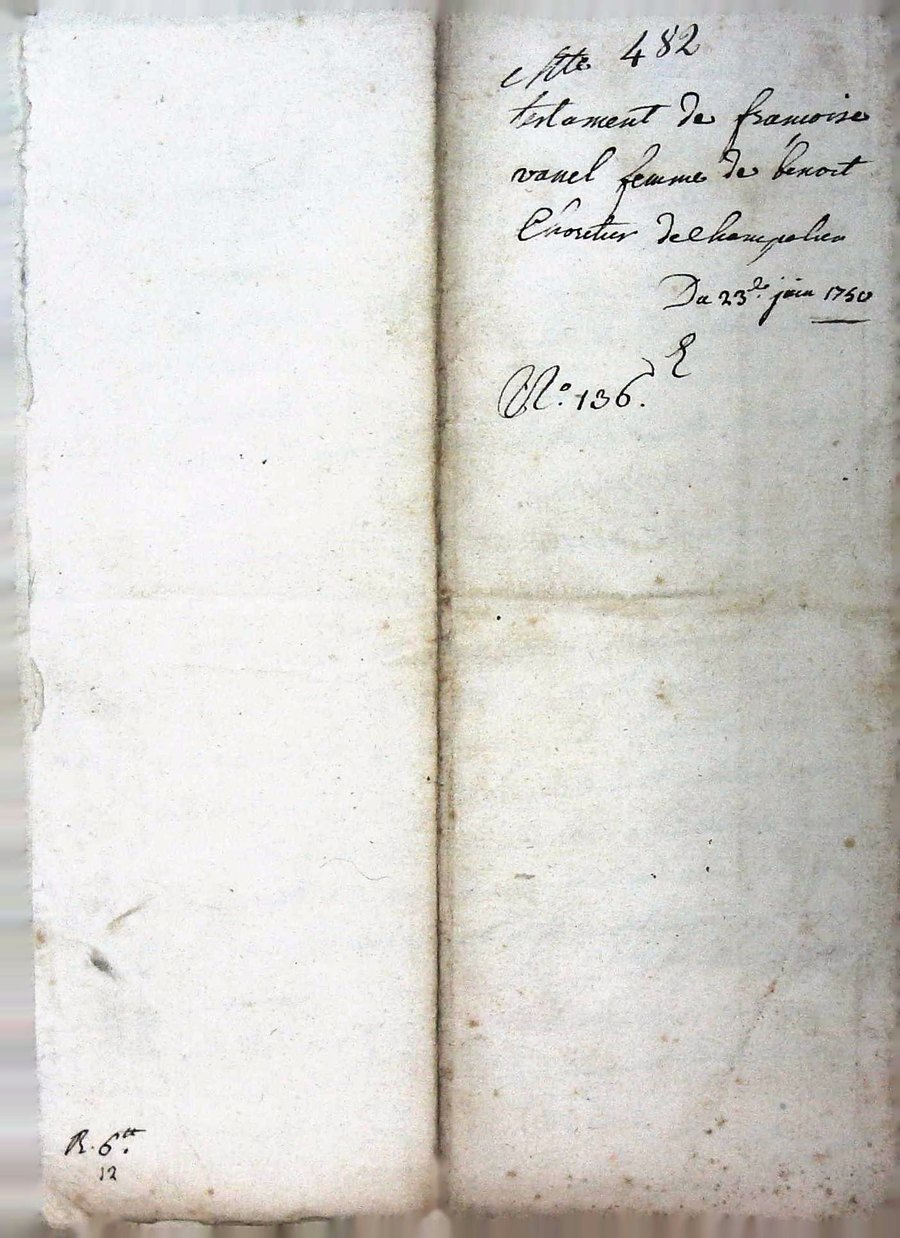 Cotte 482
testament de françoise
vanel femme de benoit
de champolieu
Du 23e. juin 1750
E
N.o 136.
R. 6tt.
12